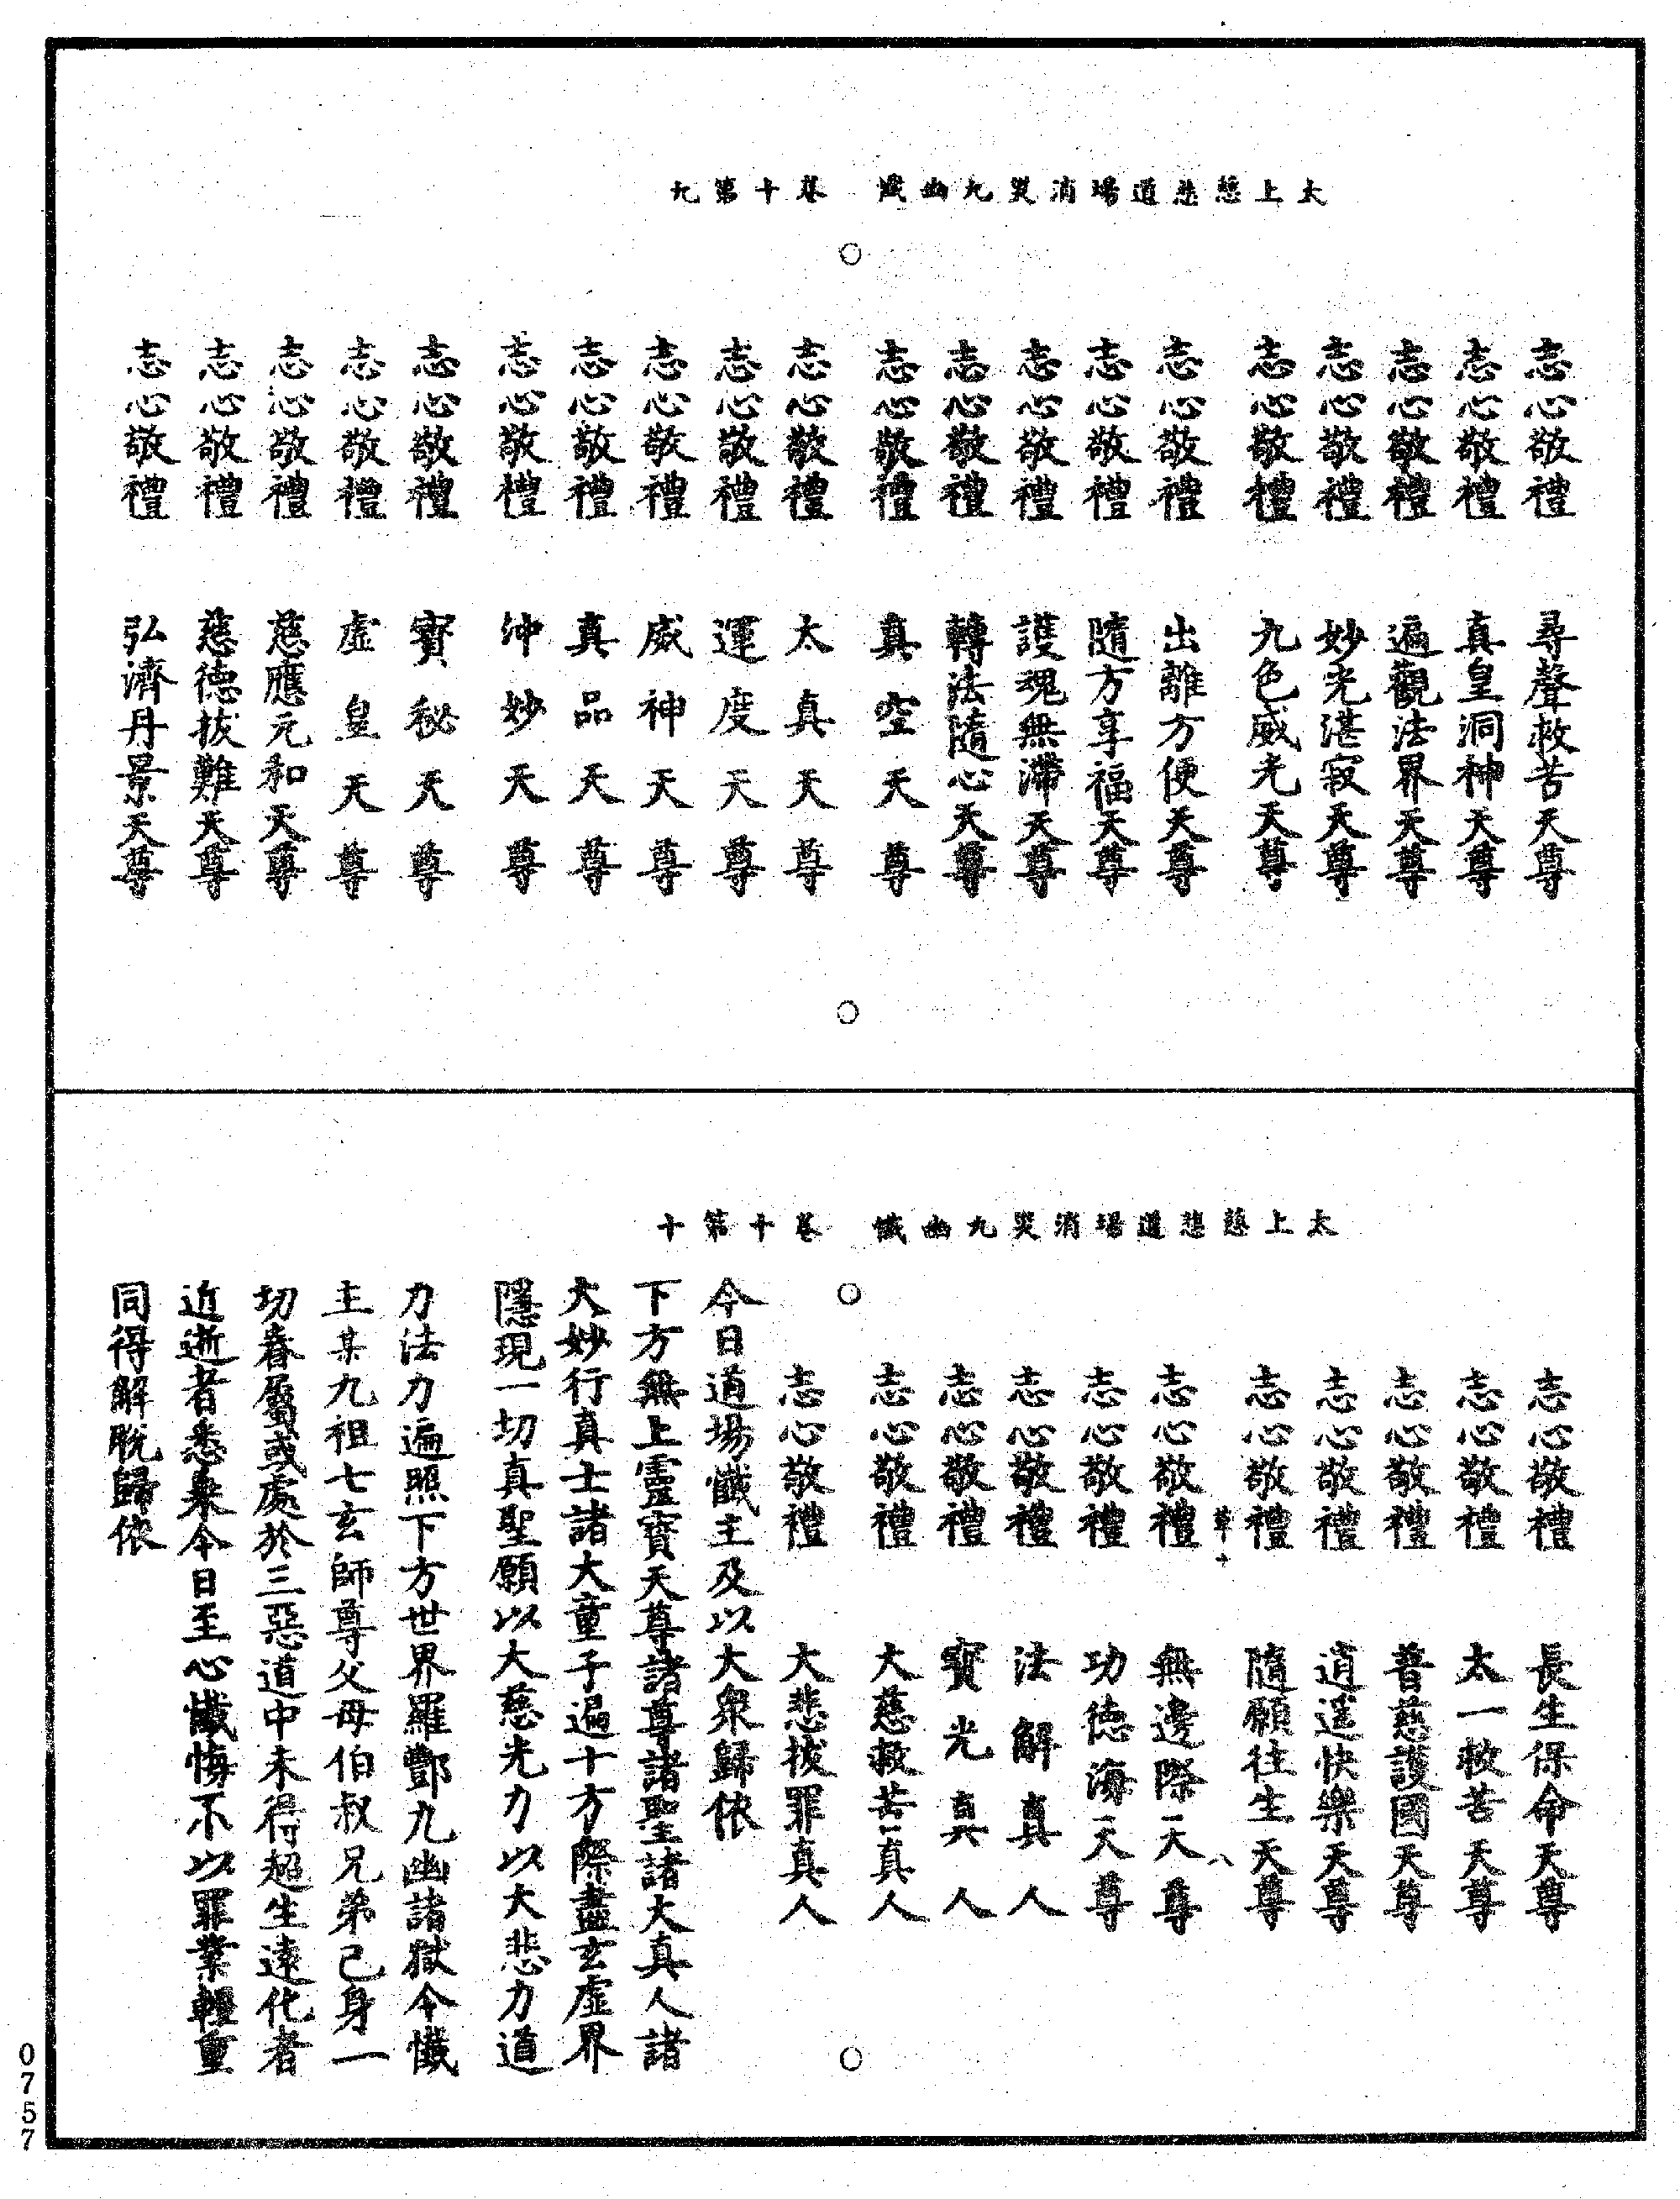 太上慈悲道場消災九幽懺　卷十第九
志心敬禮　尋聲救苦天尊
志心敬禮　真皇洞神天尊
志心敬禮　遍觀法界天尊
志心敬禮　妙光湛寂天尊
志心敬禮　九色威光天尊
志心敬禮　出離方便天尊
志心敬禮　隨方享福天尊
志心敬禮　護魂無滯天尊
志心敬禮　轉法隨心天尊
志心敬禮　真空天尊
志心敬禮　太真天尊
志心敬禮　運度天尊
志心敬禮　威神天尊
志心敬禮　真品天尊
志心敬禮　沖妙天尊
志心敬禮　寶秘天尊
志心敬禮　虛皇天尊
志心敬禮　慈應元和天尊
志心敬禮　慈德拔難天尊
志心敬禮　弘濟丹景天尊
太上慈悲道場消災九幽懺　卷十第十
志心敬禮　長生保命天尊
志心敬禮　太一救苦天尊
志心敬禮　普慈護國天尊
志心敬禮　逍遥快樂天尊
志心敬禮　隨願往生天尊
志心敬禮　無邊際天尊
志心敬禮　功德海天尊
志心敬禮　法解真人
志心敬禮　寶光真人
志心敬禮　大慈救苦真人
志心敬禮　大悲拔罪真人
今日道場懺主及以大衆歸依
下方無上靈寶天尊諸尊諸聖諸大真人諸
大妙行真士諸大童子遍十方際盡玄虛界
隱現一切真聖願以大慈光力以大悲力道
力法力遍照下方世界羅酆九幽諸獄令懺
主某九祖七玄師尊父母伯叔兄弟己身一
切眷屬或處於三惡道中未得超生遠化者
近逝者悉乗今日至心懺悔不以罪業輕重
同得解脫歸依
0757